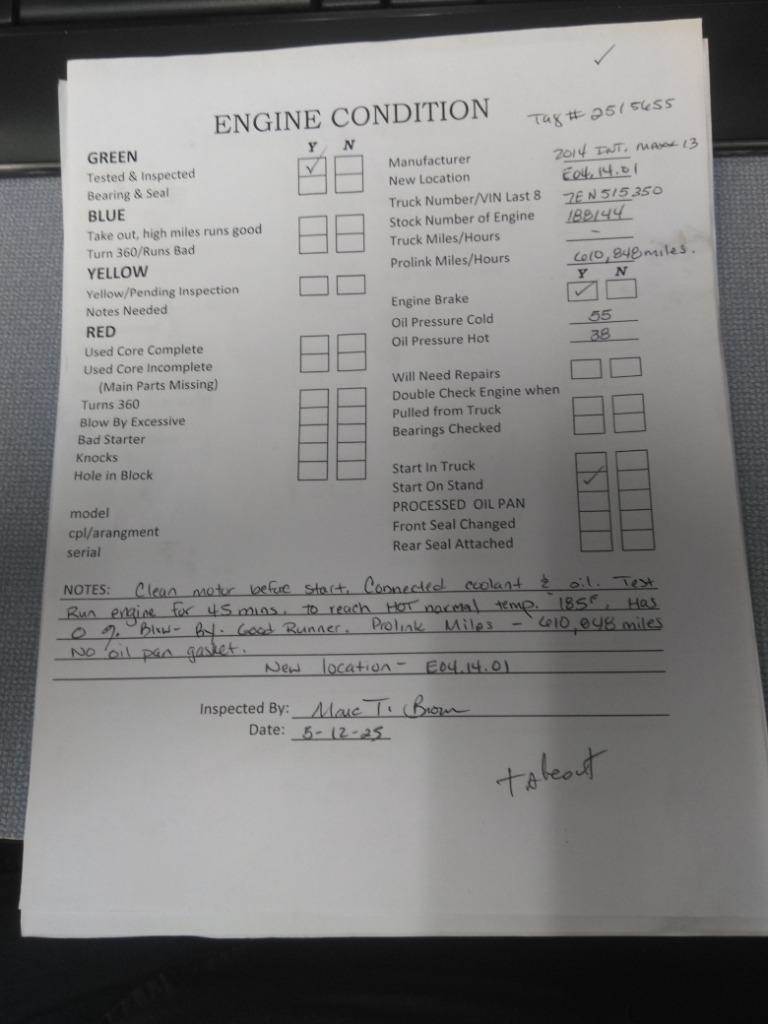 ENGINE CONDITION
Tag # 2515655
Y N
GREEN
Tested & Inspected
Bearing & Seal
BLUE
Take out, high miles runs good
Turn 360/Runs Bad
YELLOW
Yellow/Pending Inspection
Notes Needed
RED
Used Core Complete
Used Core Incomplete
(Main Parts Missing)
Turns 360
Blow By Excessive
Bad Starter
Knocks
Hole in Block
model
cpl/arangment
serial
Manufacturer 2014 INT. MAXX 13
New Location E04.14.01
Truck Number/VIN Last 8 7EN515350
Stock Number of Engine 188144
Truck Miles/Hours -
Prolink Miles/Hours 610,848 miles.
Y N
Engine Brake
Oil Pressure Cold 55
Oil Pressure Hot 38
Will Need Repairs
Double Check Engine when
Pulled from Truck
Bearings Checked
Start In Truck
Start On Stand
PROCESSED OIL PAN
Front Seal Changed
Rear Seal Attached
NOTES: Clean motor before start. Connected coolant & oil. Test
Run engine for 45 mins. to reach HOT normal temp. 185F. Has
0 % Blow-By. Good Runner. Prolink Miles - 610,848 miles
No oil pan gasket.
New location - E04.14.01
Inspected By: Marc T. Brown
Date: 5-12-25
takeout